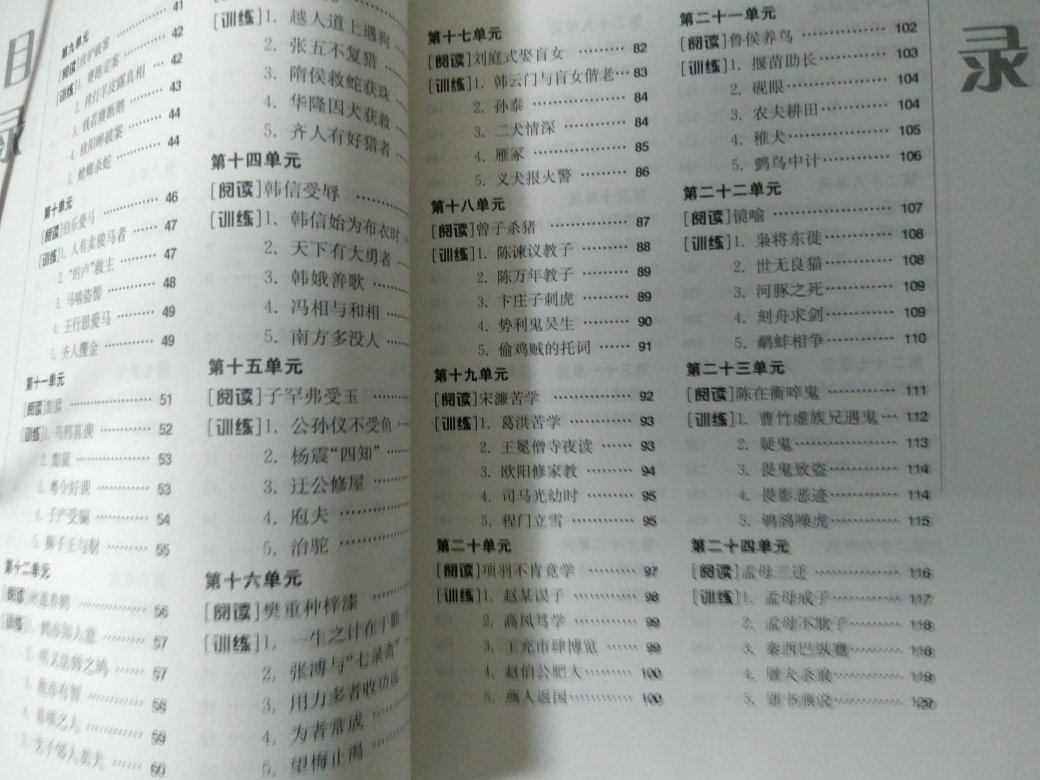 目录
41
第九单元
破案 42
[训练]1. 案 42
2. 拷打羊皮露真相 43
3. 钱若赓断鹅 44
4. 欧阳晔破案 44
5. 螳螂杀蛇 44
第十单元
[阅读]伯乐爱马 46
[训练]1. 人有卖骏马者 47
2. “的卢”救主 47
3. 马啮盗髻 48
4. 王行思爱马 49
5. 齐人攫金 49
第十一单元
[阅读] 51
[训练]1. 乌鸦喜谀 52
2. 鼠 53
3. 粤令好谀 53
4. 子产受骗 54
5. 狮子王与豺 55
第十二单元
[阅读]林逋养鹤 56
[训练]1. 鹤亦知人意 57
2. 之鸠 57
3. 亦有智 58
4. 之人 59
5. 艾子邻人 60
[训练]1. 越人道上遇狗
2. 张五不复猎
3. 隋侯救蛇获珠
4. 华隆因犬获救
5. 齐人有好猎者
第十四单元
[阅读]韩信受辱
[训练]1. 韩信始为布衣时
2. 天下有大勇者
3. 韩娥善歌
4. 冯相与和相
5. 南方多没人
第十五单元
[阅读]子罕弗受玉
[训练]1. 公孙仪不受鱼
2. 杨震“四知”
3. 迂公修屋
4. 庖夫
5. 治驼
第十六单元
[阅读]樊重种梓漆
[训练]1. 一生之计在于勤
2. 张溥与“七录斋”
3. 用力多者收功远
4. 为者常成
5. 望梅止渴
第十七单元
[阅读]刘庭式娶盲女 82
[训练]1. 韩云门与盲女偕老 83
2. 孙泰 84
3. 二犬情深 84
4. 雁冢 85
5. 义犬报火警 86
第十八单元
[阅读]曾子杀猪 87
[训练]1. 陈谏议教子 88
2. 陈万年教子 89
3. 卞庄子刺虎 89
4. 势利鬼吴生 90
5. 偷鸡贼的托词 91
第十九单元
[阅读]宋濂苦学 92
[训练]1. 葛洪苦学 93
2. 王冕僧寺夜读 93
3. 欧阳修家教 94
4. 司马光幼时 95
5. 程门立雪 95
第二十单元
[阅读]项羽不肯竟学 97
[训练]1. 赵某误子 98
2. 高凤笃学 99
3. 王充市肆博览 99
4. 赵伯公肥大 100
5. 燕人返国 100
第二十一单元
[阅读]鲁侯养鸟 102
[训练]1. 揠苗助长 103
2. 砚眼 104
3. 农夫耕田 104
4. 稚犬 105
5. 鹦鸟中计 106
第二十二单元
[阅读]镜喻 107
[训练]1. 枭将东徙 108
2. 世无良猫 108
3. 河豚之死 109
4. 刻舟求剑 109
5. 鹬蚌相争 110
第二十三单元
[阅读]陈在衡啐鬼 111
[训练]1. 曹竹虚族兄遇鬼 112
2. 疑鬼 113
3. 畏鬼致盗 114
4. 畏影恶迹 114
5. 鸲鹆噪虎 115
第二十四单元
[阅读]孟母三迁 116
[训练]1. 孟母戒子 117
2. 孟母不欺子 118
3. 秦西巴纵麑 118
4. 屠夫杀狼 119
5. 郢书燕说 120
录